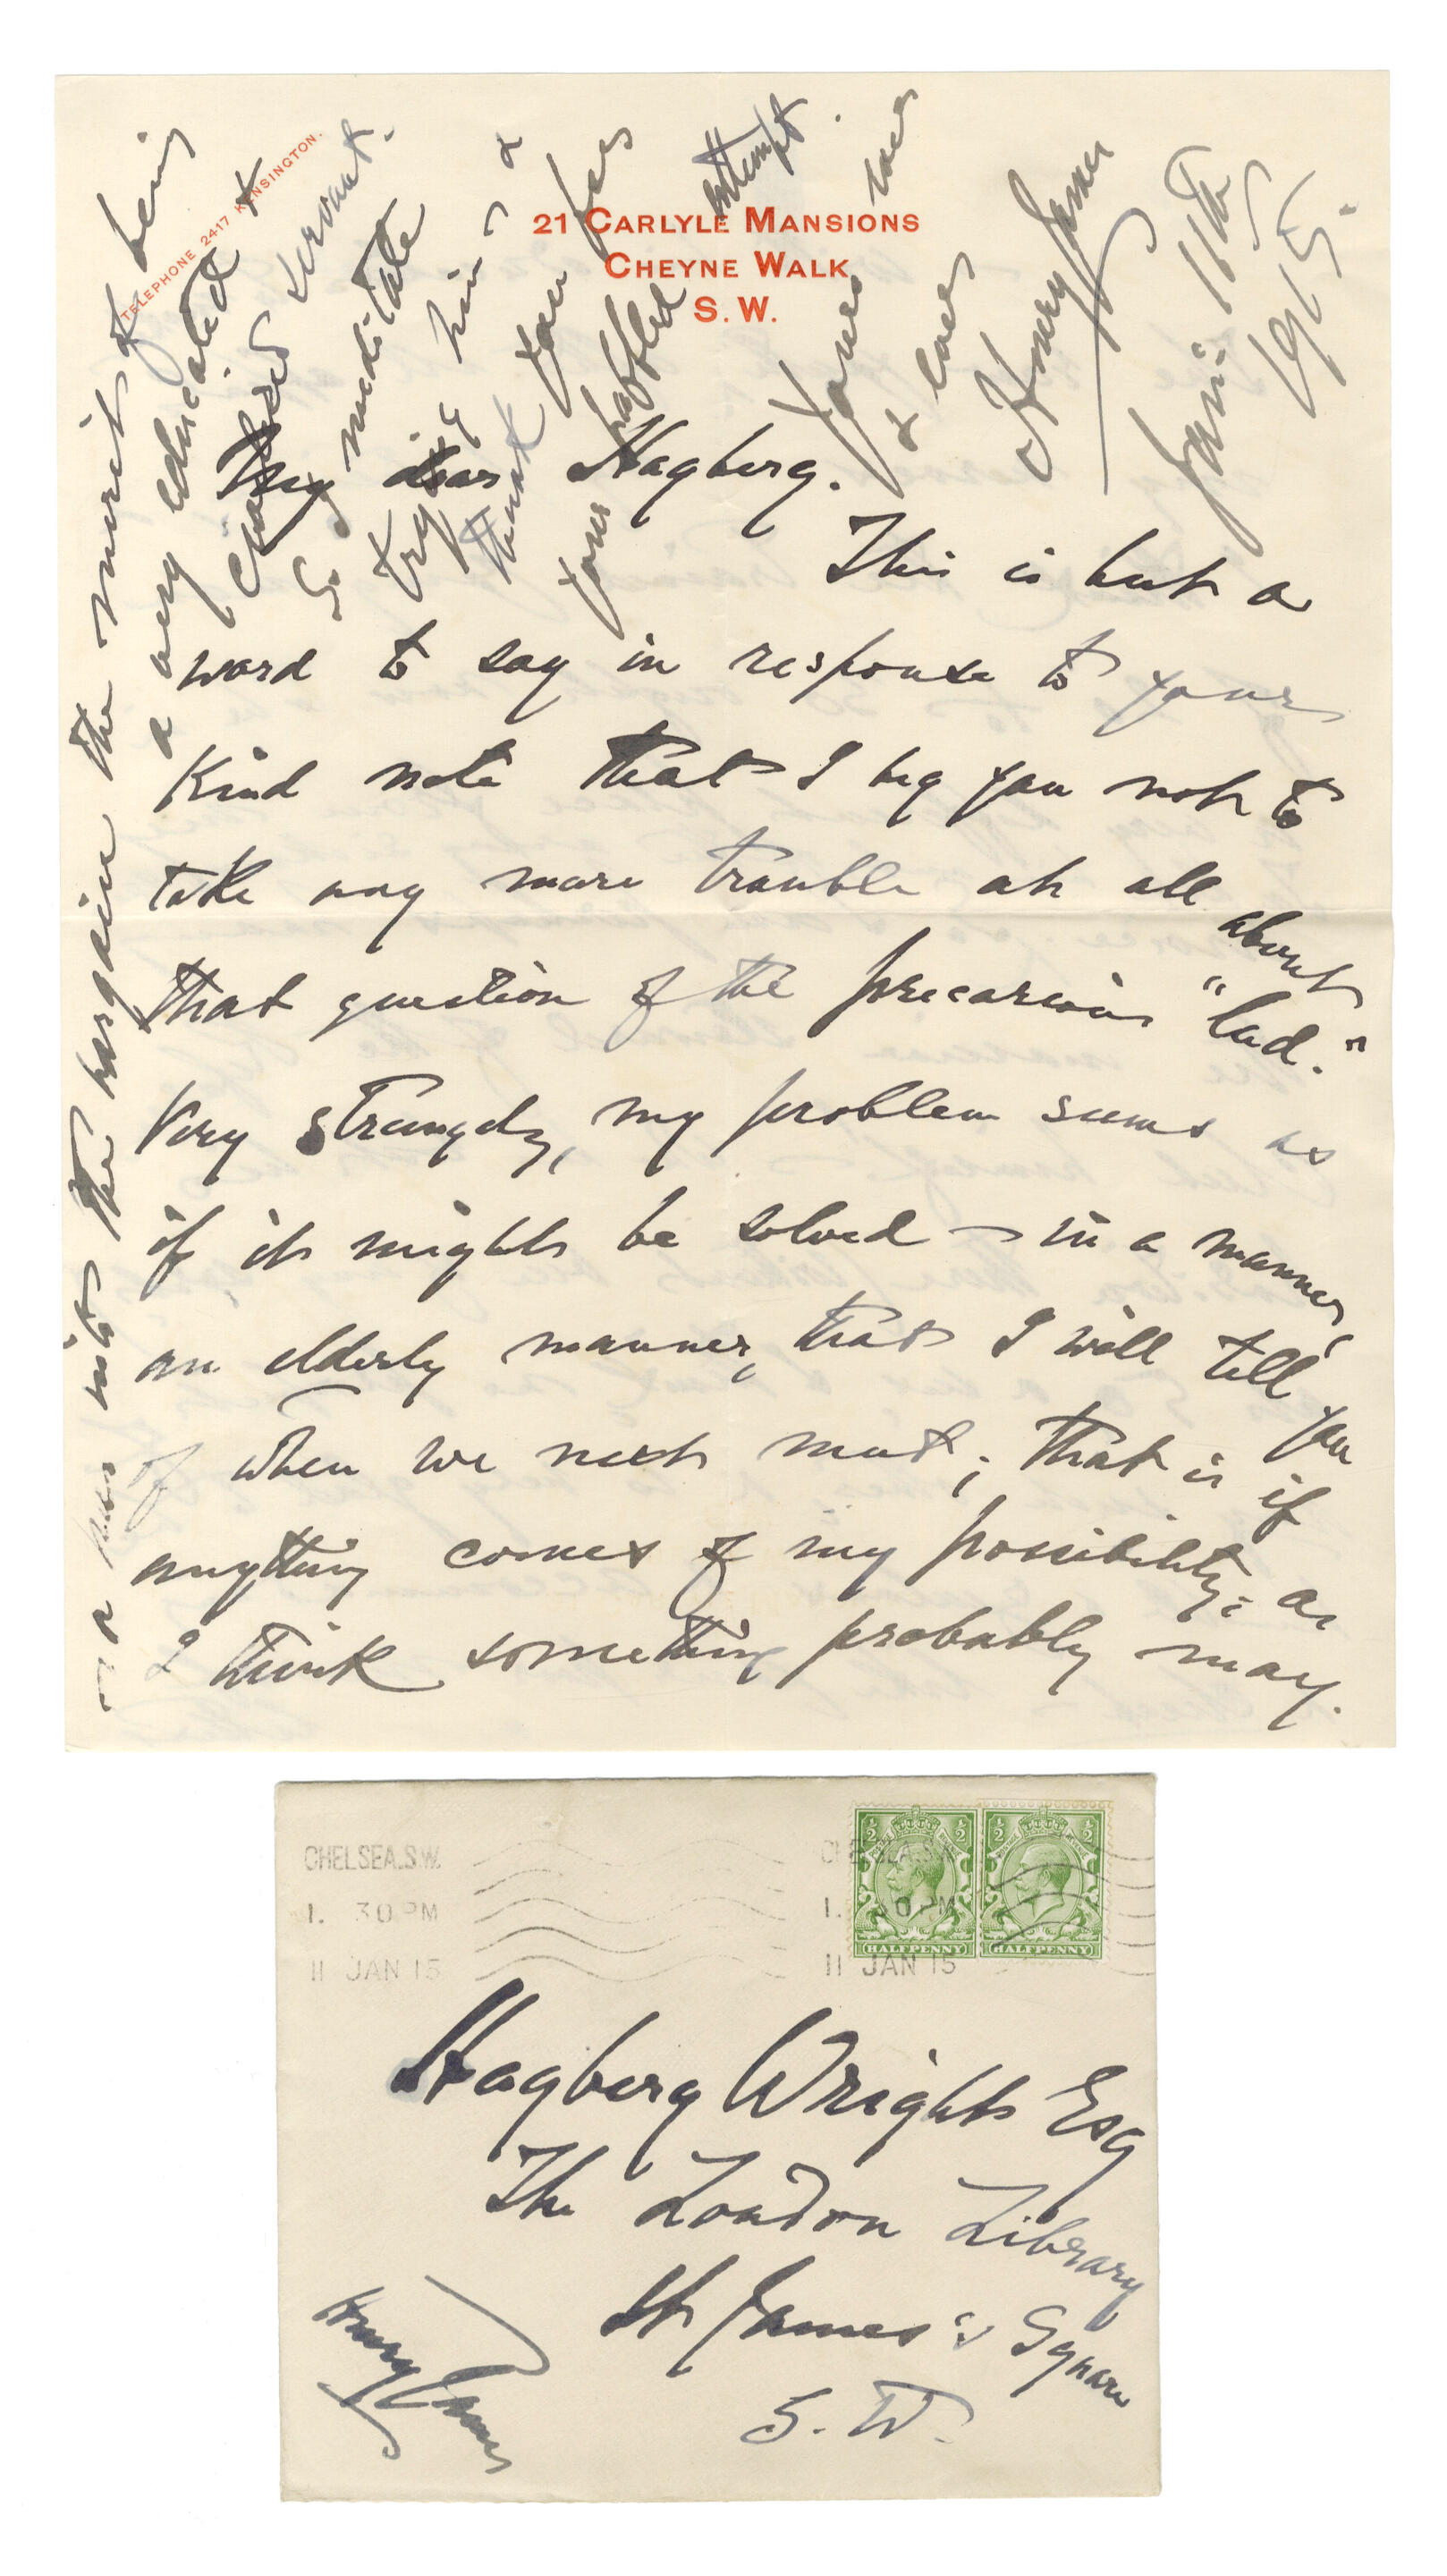 TELEPHONE 2417 KENSINGTON.
21 CARLYLE MANSIONS
CHEYNE WALK
S. W.
My dear Hagberg.
This is but a
word to say in response to your
kind note that I beg you not to
take any more trouble at all about
that question of the precarious "lad."
Very strangely, my problem seems as
if it might be solved — in a manner,
an elderly manner, that I will tell you
of when we next meet; that is if
anything comes of my possibility: as
I think something probably may.
into the bargain the merit of being
a very educated &
servant.
So meditate
try him &
thank you for
your baffled attempt.
Yours ever
& ever
Henry James
Jan: 11th
1915.
CHELSEA.S.W.
1. 30 PM
11 JAN 15
CHELSEA.S.W.
1. 30 PM
11 JAN 15
½ ½ ½ ½
HALFPENNY HALFPENNY
Hagberg Wright Esq
The London Library
St James's Square
S. W.
Henry James